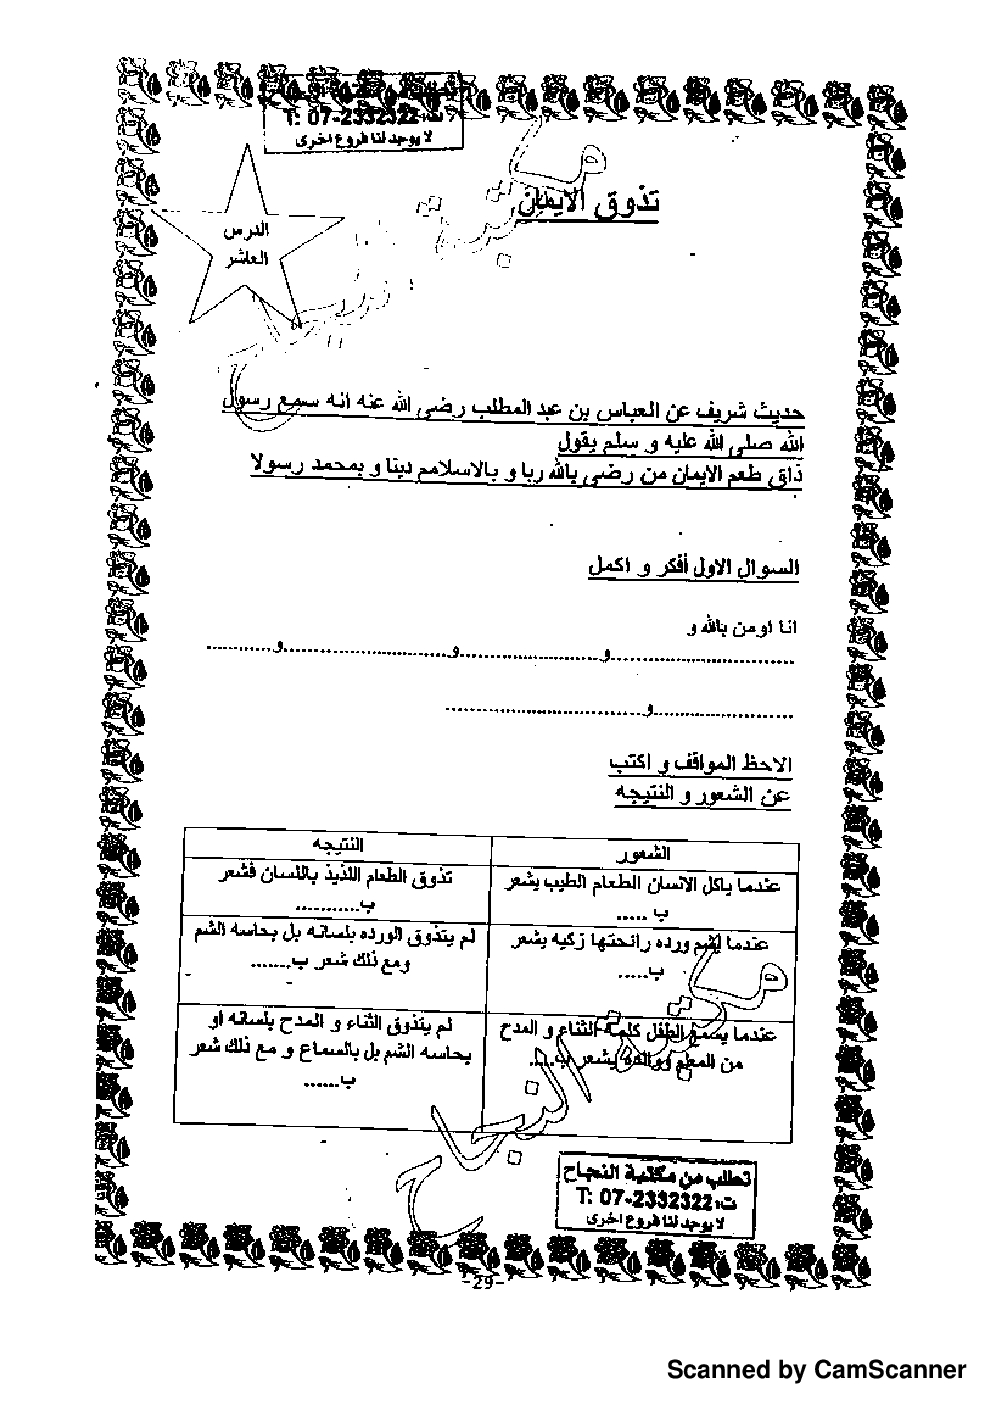 T: 07-2332322 ت:
لا يوجد لنا فروع اخرى
تذوق الايمان
الدرس
العاشر
حديث شريف عن العباس بن عبد المطلب رضي الله عنه انه سمع رسول
الله صلى الله عليه و سلم يقول
ذاق طعم الايمان من رضي بالله ربا و بالاسلام دينا و بمحمد رسولا
السوال الاول أفكر و اكمل
انا اومن بالله و
..............................و..........................و..............................و............
..........................و..............................
الاحظ المواقف و اكتب
عن الشعور و النتيجه
الشعور
النتيجه
عندما ياكل الانسان الطعام الطيب يشعر
ب .....
تذوق الطعام اللذيذ باللسان فشعر
ب...........
عندما يشم ورده رائحتها زكيه يشعر
ب.....
لم يتذوق الورده بلسانه بل بحاسه الشم
ومع ذلك شعر ب.......
عندما يسمع الطفل كلمة الثناء و المدح
من المعلم ووالده يشعر ب.....
لم يتذوق الثناء و المدح بلسانه أو
بحاسه الشم بل بالسماع و مع ذلك شعر
ب.......
مكتبة النجاح
تطلب من مكتبة النجاح
T: 07-2332322 ت:
لا يوجد لنا فروع اخرى
-29-
Scanned by CamScanner